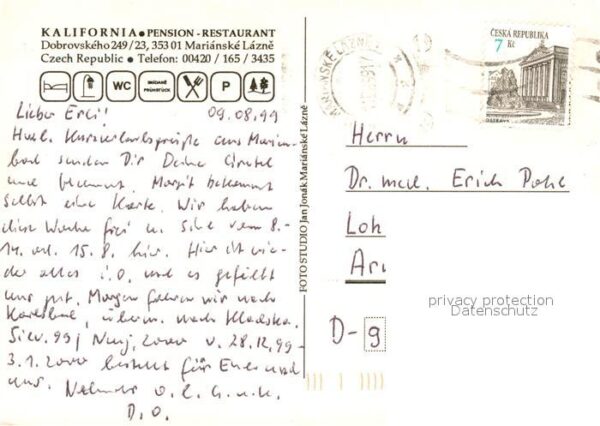 KALIFORNIA ● PENSION - RESTAURANT
Dobrovského 249/23, 353 01 Mariánské Lázně
Czech Republic ● Telefon: 00420 / 165 / 3435
WC
SNÍDANĚ
FRÜHSTÜCK
P
Lieber Erci! 09.08.99
Herzl. Kurzurlaubsgrüße aus Marien-
bad senden Dir Deine
und Margit bekommt
selbst eine Karte. Wir haben
diese Woche frei u. sind vom 8.-
14. od. 15.8. hier. Hier ist wie-
der alles i.O. und es gefällt
uns gut. Morgen fahren wir nach
Karlsbad, übern. nach Kladska.
Silv. 99/ Neuj. 2000 v. 28.12.99-
3.1.2000 bestellt für Euch und
uns.
D.O.
FOTO STUDIO Jan Jonák Mariánské Lázně
ČESKÁ REPUBLIKA
7 Kč
OSTRAVA
MARIÁNSKÉ LÁZNĚ
Herrn
Dr. med. Erich
Loh
Ar
D-9
privacy protection
Datenschutz